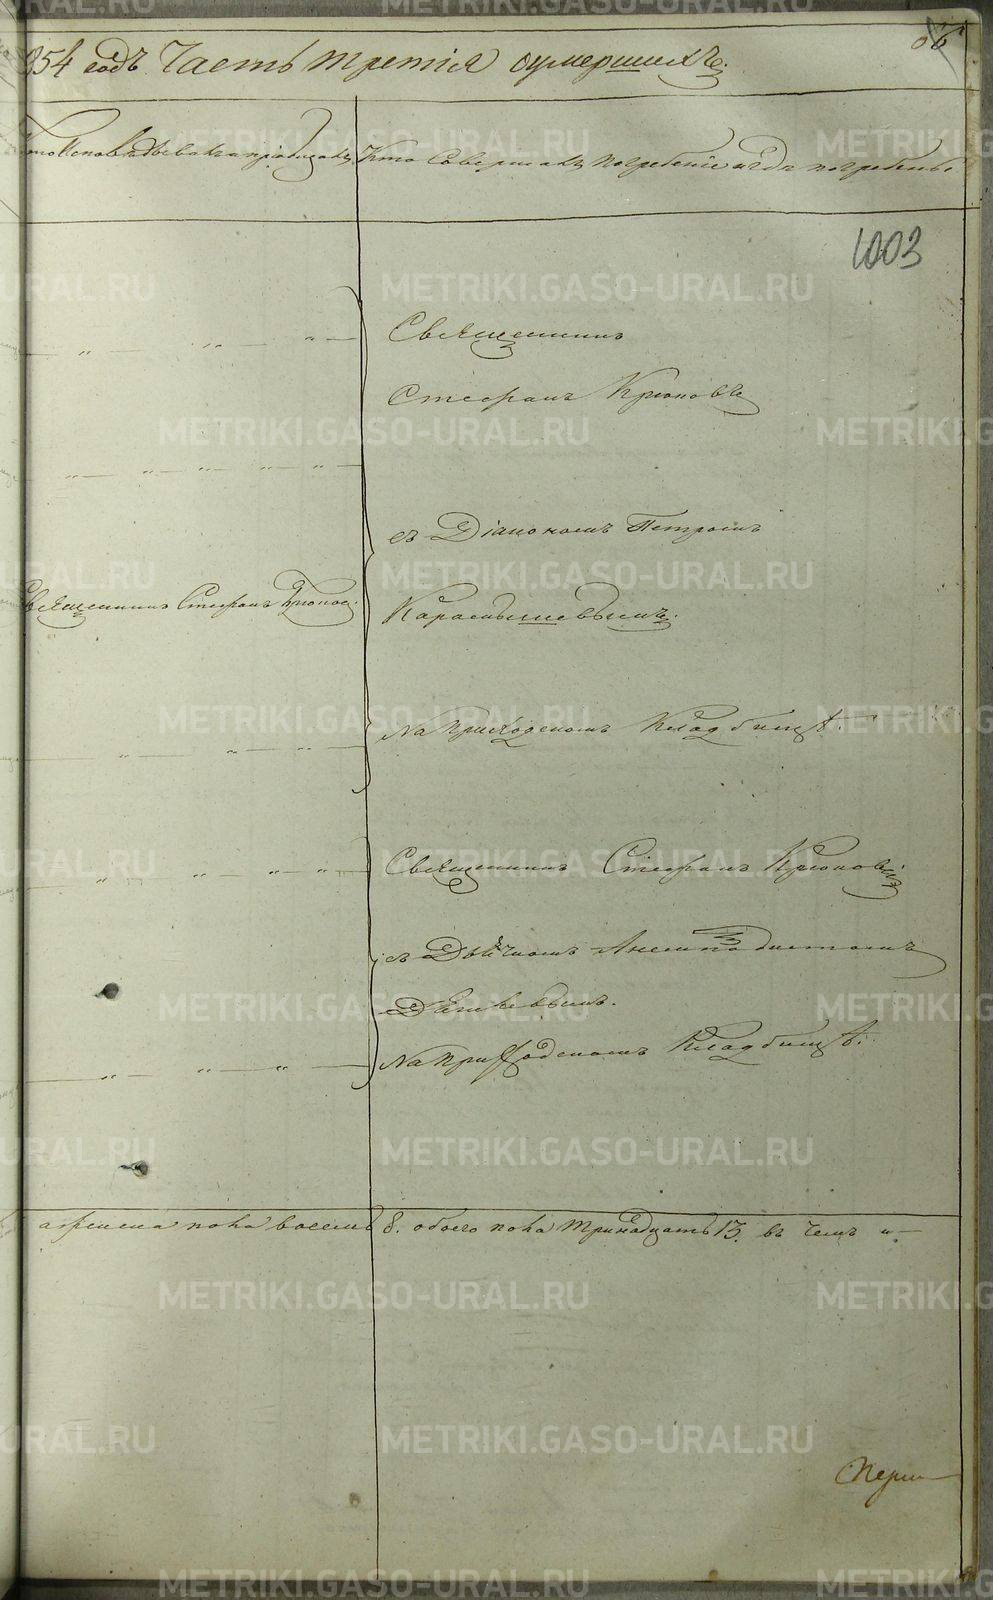 854 годъ Часть третія оумершихъ.
Кто Исповѣдывалъ и пріобщалъ
Кто Совершалъ погребеніе и гдѣ погребены
1003
Священникъ
Стефанъ Крюковъ
съ Діакономъ Петромъ
Священникъ Стефанъ Крюковъ.
Карамышевымъ.
На приходскомъ Кладбищѣ.
Священникъ Стефанъ Крюковъ
съ Дьячкомъ
На приходскомъ Кладбищѣ.
а женска пола восемь 8. обоего пола тринадцать 13. въ чемъ
METRIKI.GASO-URAL.RU